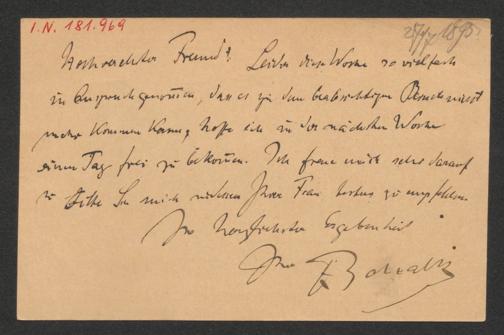 I.N. 181.969
1895
Hochverehrter Freund! Leider diese Woche so vielfach
in Anspruch genommen, dass es zu dem beabsichtigten Besuch nicht
mehr kommen kann, hoffe ich in der nächsten Woche
einen Tag frei zu bekommen. Ich freue mich sehr darauf
u. bitte Sie mich Ihrer Frau bestens zu empfehlen.
In herzlichster Ergebenheit
Ihr